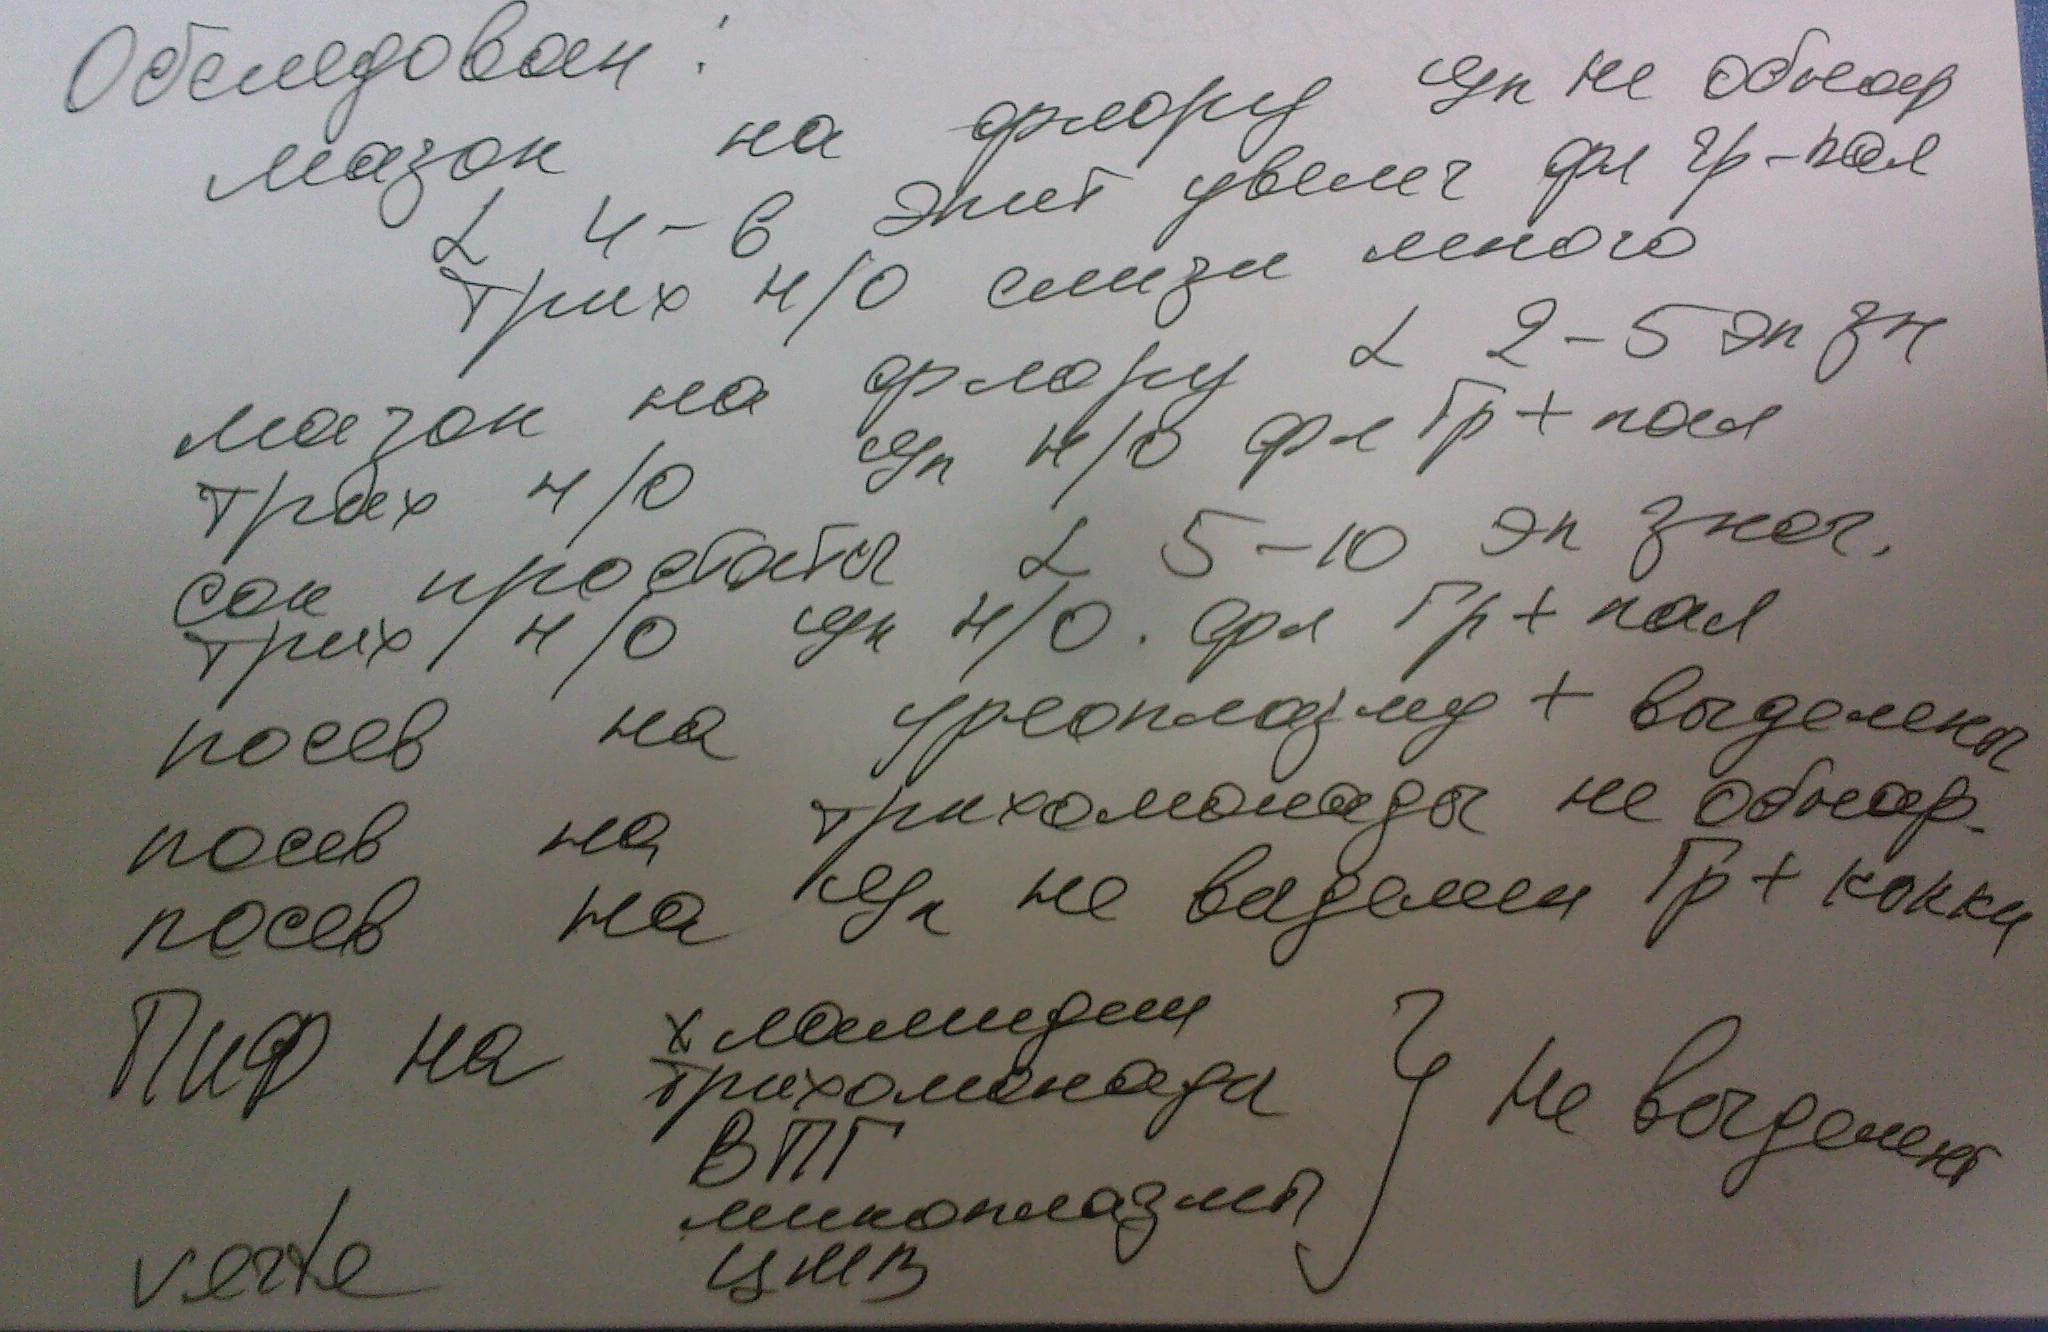 Обследован:
мазок на флору Gn не обнар
L 4-6 эпит увелич фл гр-пал
трих н/о слизи много
мазок на флору L 2-5 эп зн
трих н/о Gn н/о фл Гр+пал
сок простаты L 5-10 эп знач.
трих н/о Gn н/о. фл Гр+пал
посев на уреоплазму + выделены
посев на трихомонады не обнар.
посев на Gn не выделен Гр+кокки
Пиф на хламидии } не выделены
трихомонады
ВПГ
микоплазмы
ЦМВ
verte